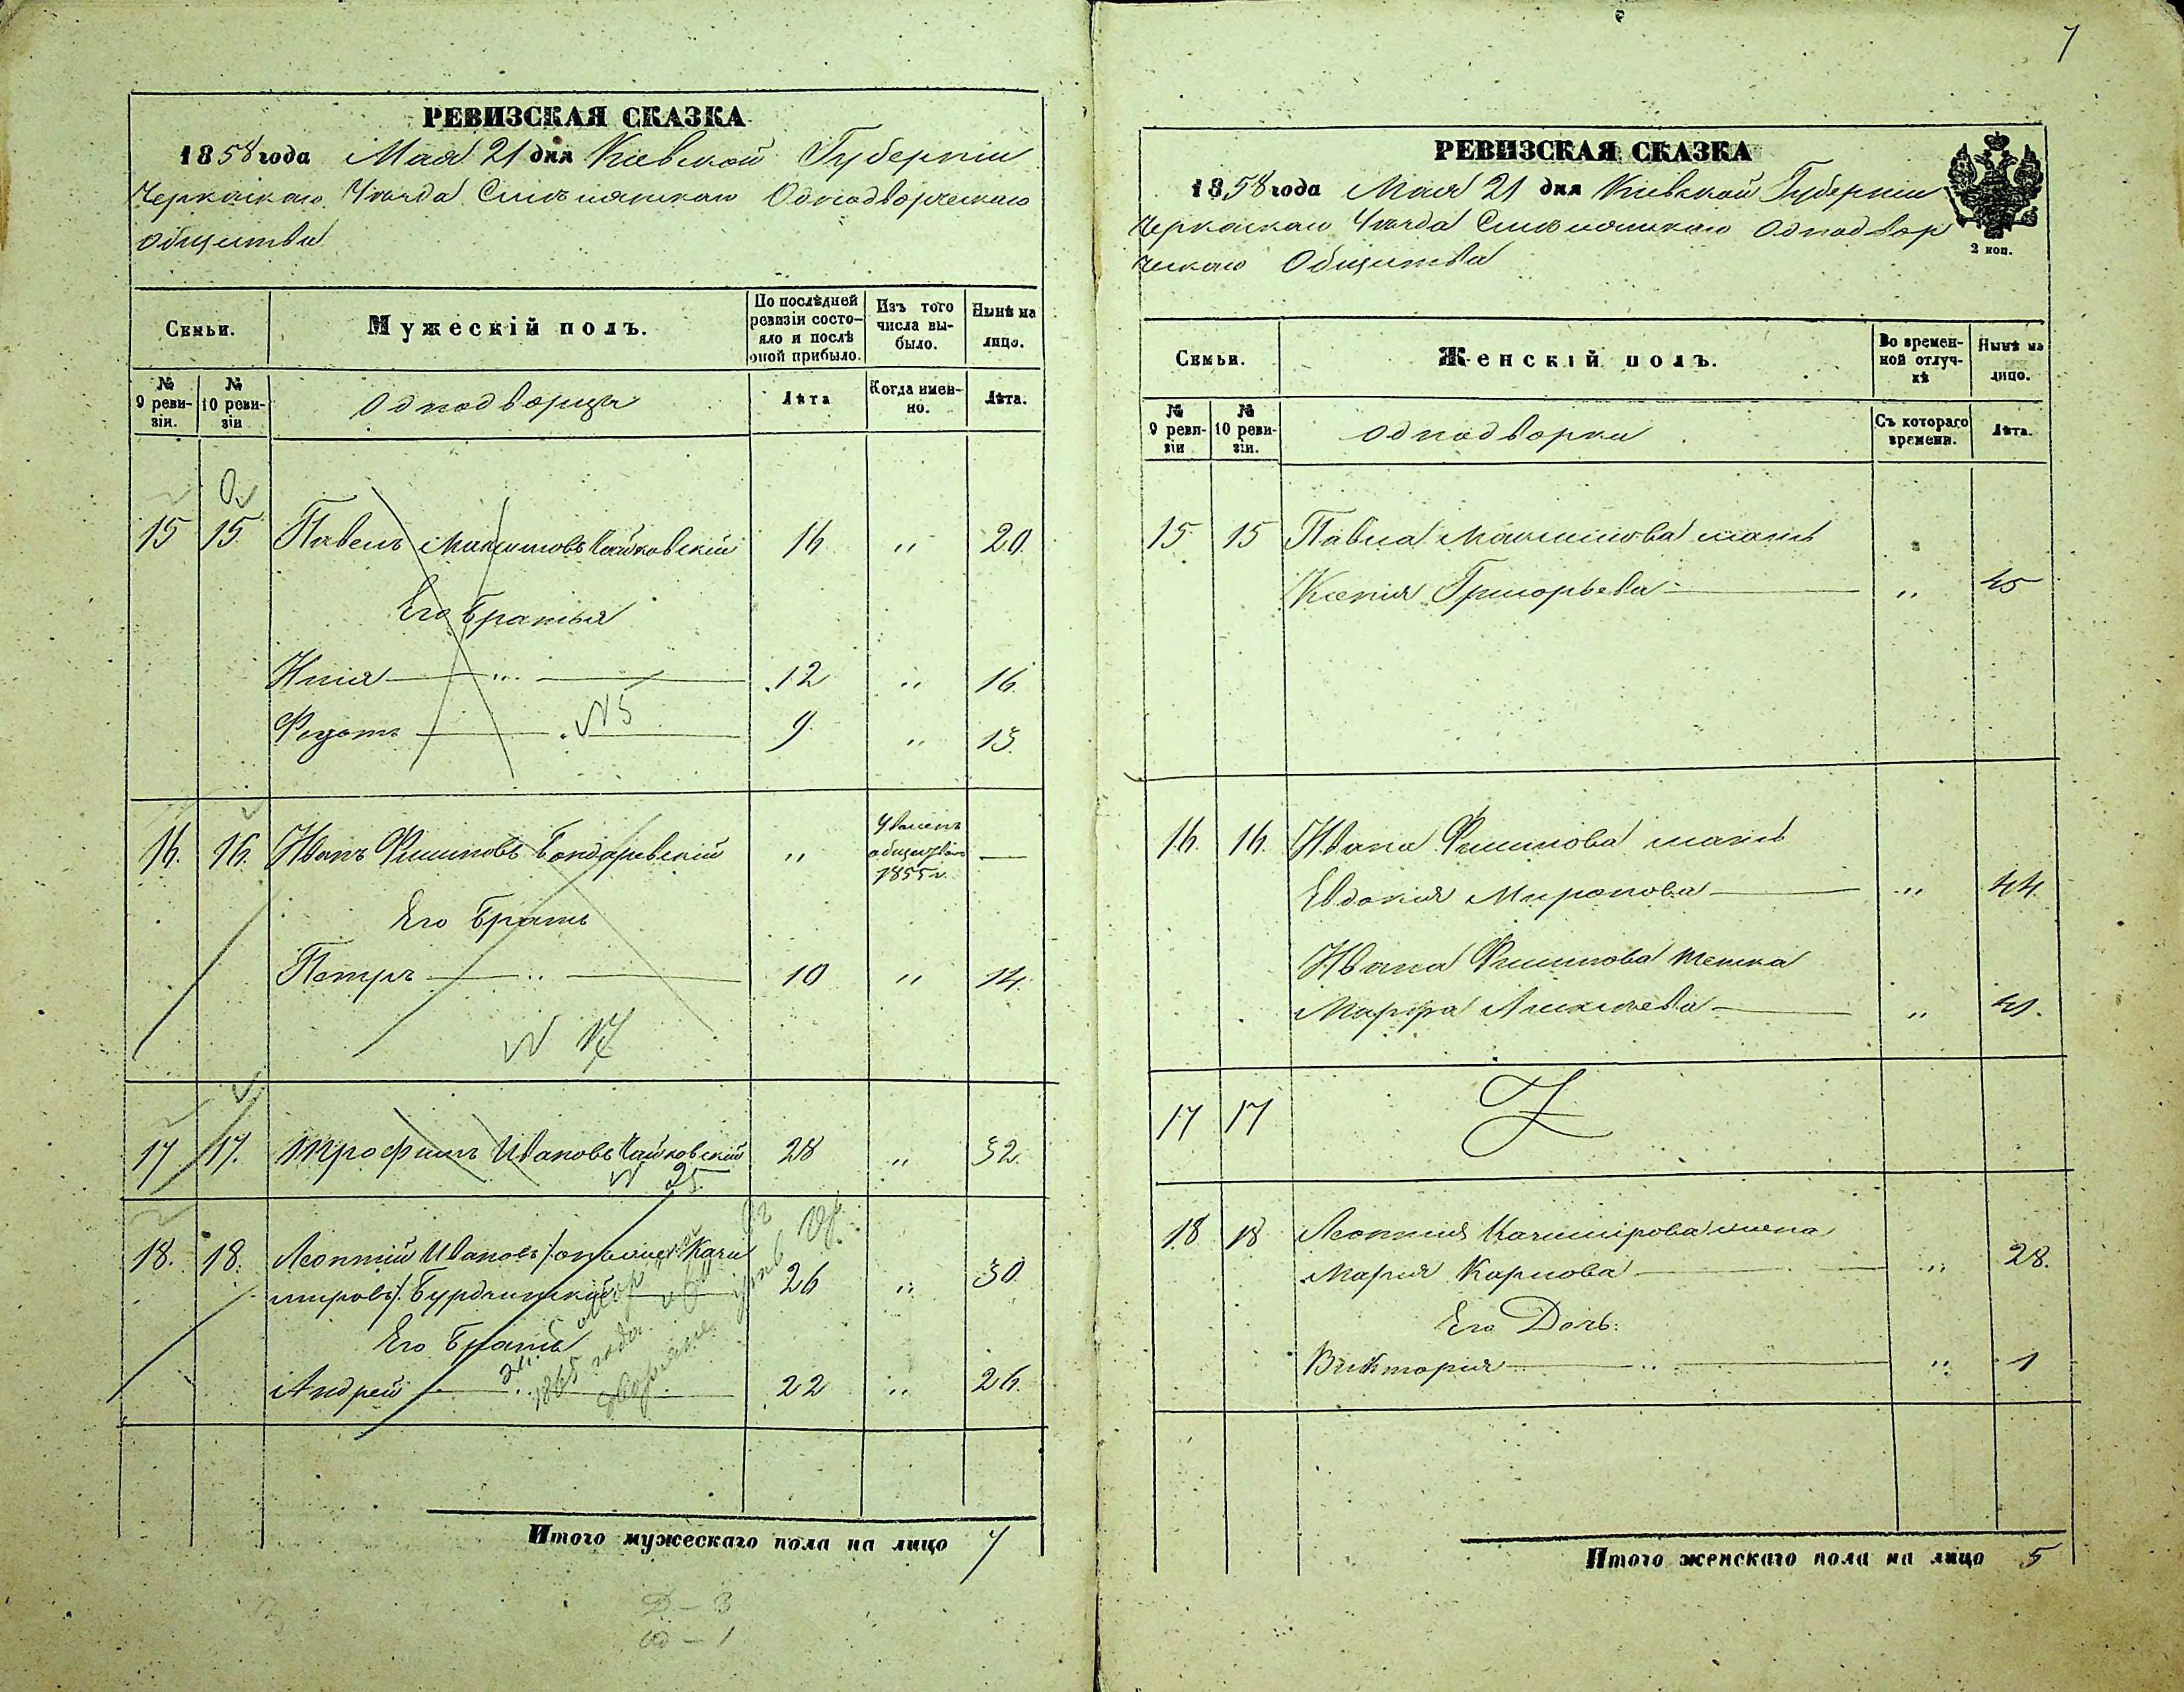 7
РЕВИЗСКАЯ СКАЗКА
1858 года Мая 21 дня Кіевской Губерніи
Черкаскаго Уѣзда Смѣлянскаго Однодворческаго
общества
Семьи.
Мужескій полъ.
По послѣдней ревизіи состояло и послѣ оной прибыло.
Изъ того числа выбыло.
Нынѣ на лицо.
№ 9 ревизіи.
№ 10 ревизіи
Однодворцы
Лѣта
Когда именно.
Лѣта.
15 15 Павелъ Максимовъ Чайковскій 16 " 20
Его братья
Илія " 12 " 16
Федотъ " 9 " 13
N 5
16. 16. Иванъ Филиповъ Бондаревскій " Уволенъ обществомъ 1855 г. —
Его братъ
Петръ " 10 " 14
N 17
17 17. Трофимъ Ивановъ Чайковскій 28 " 32.
N 25
18. 18. Леонтій Ивановъ /онъ же Казимировъ/ Бурдзинскій 26 " 30
Его братъ
Андрей " 22 " 26.
1865 года
Итого мужескаго пола на лицо 7
РЕВИЗСКАЯ СКАЗКА
1858 года Мая 21 дня Кіевской Губерніи
Черкаскаго Уѣзда Смѣлянскаго Однодвор
ческаго Общества
2 коп.
Семьи.
Женскій полъ.
Во временной отлучкѣ
Нынѣ на лицо.
№ 9 ревизіи
№ 10 ревизіи.
Однодворки
Съ котораго времени.
Лѣта.
15 15 Павла Максимова мать
Ксенія Григорьева " 45
16. 16. Ивана Филипова мать
Евдокія Миронова " 44
Ивана Филипова тетка
Марфа Алексѣева "
17 17
18 18 Леонтія Казимірова жена
Марія Карпова " 28.
Его Дочь:
Викторія " " 1
Итого женскаго пола на лицо 5